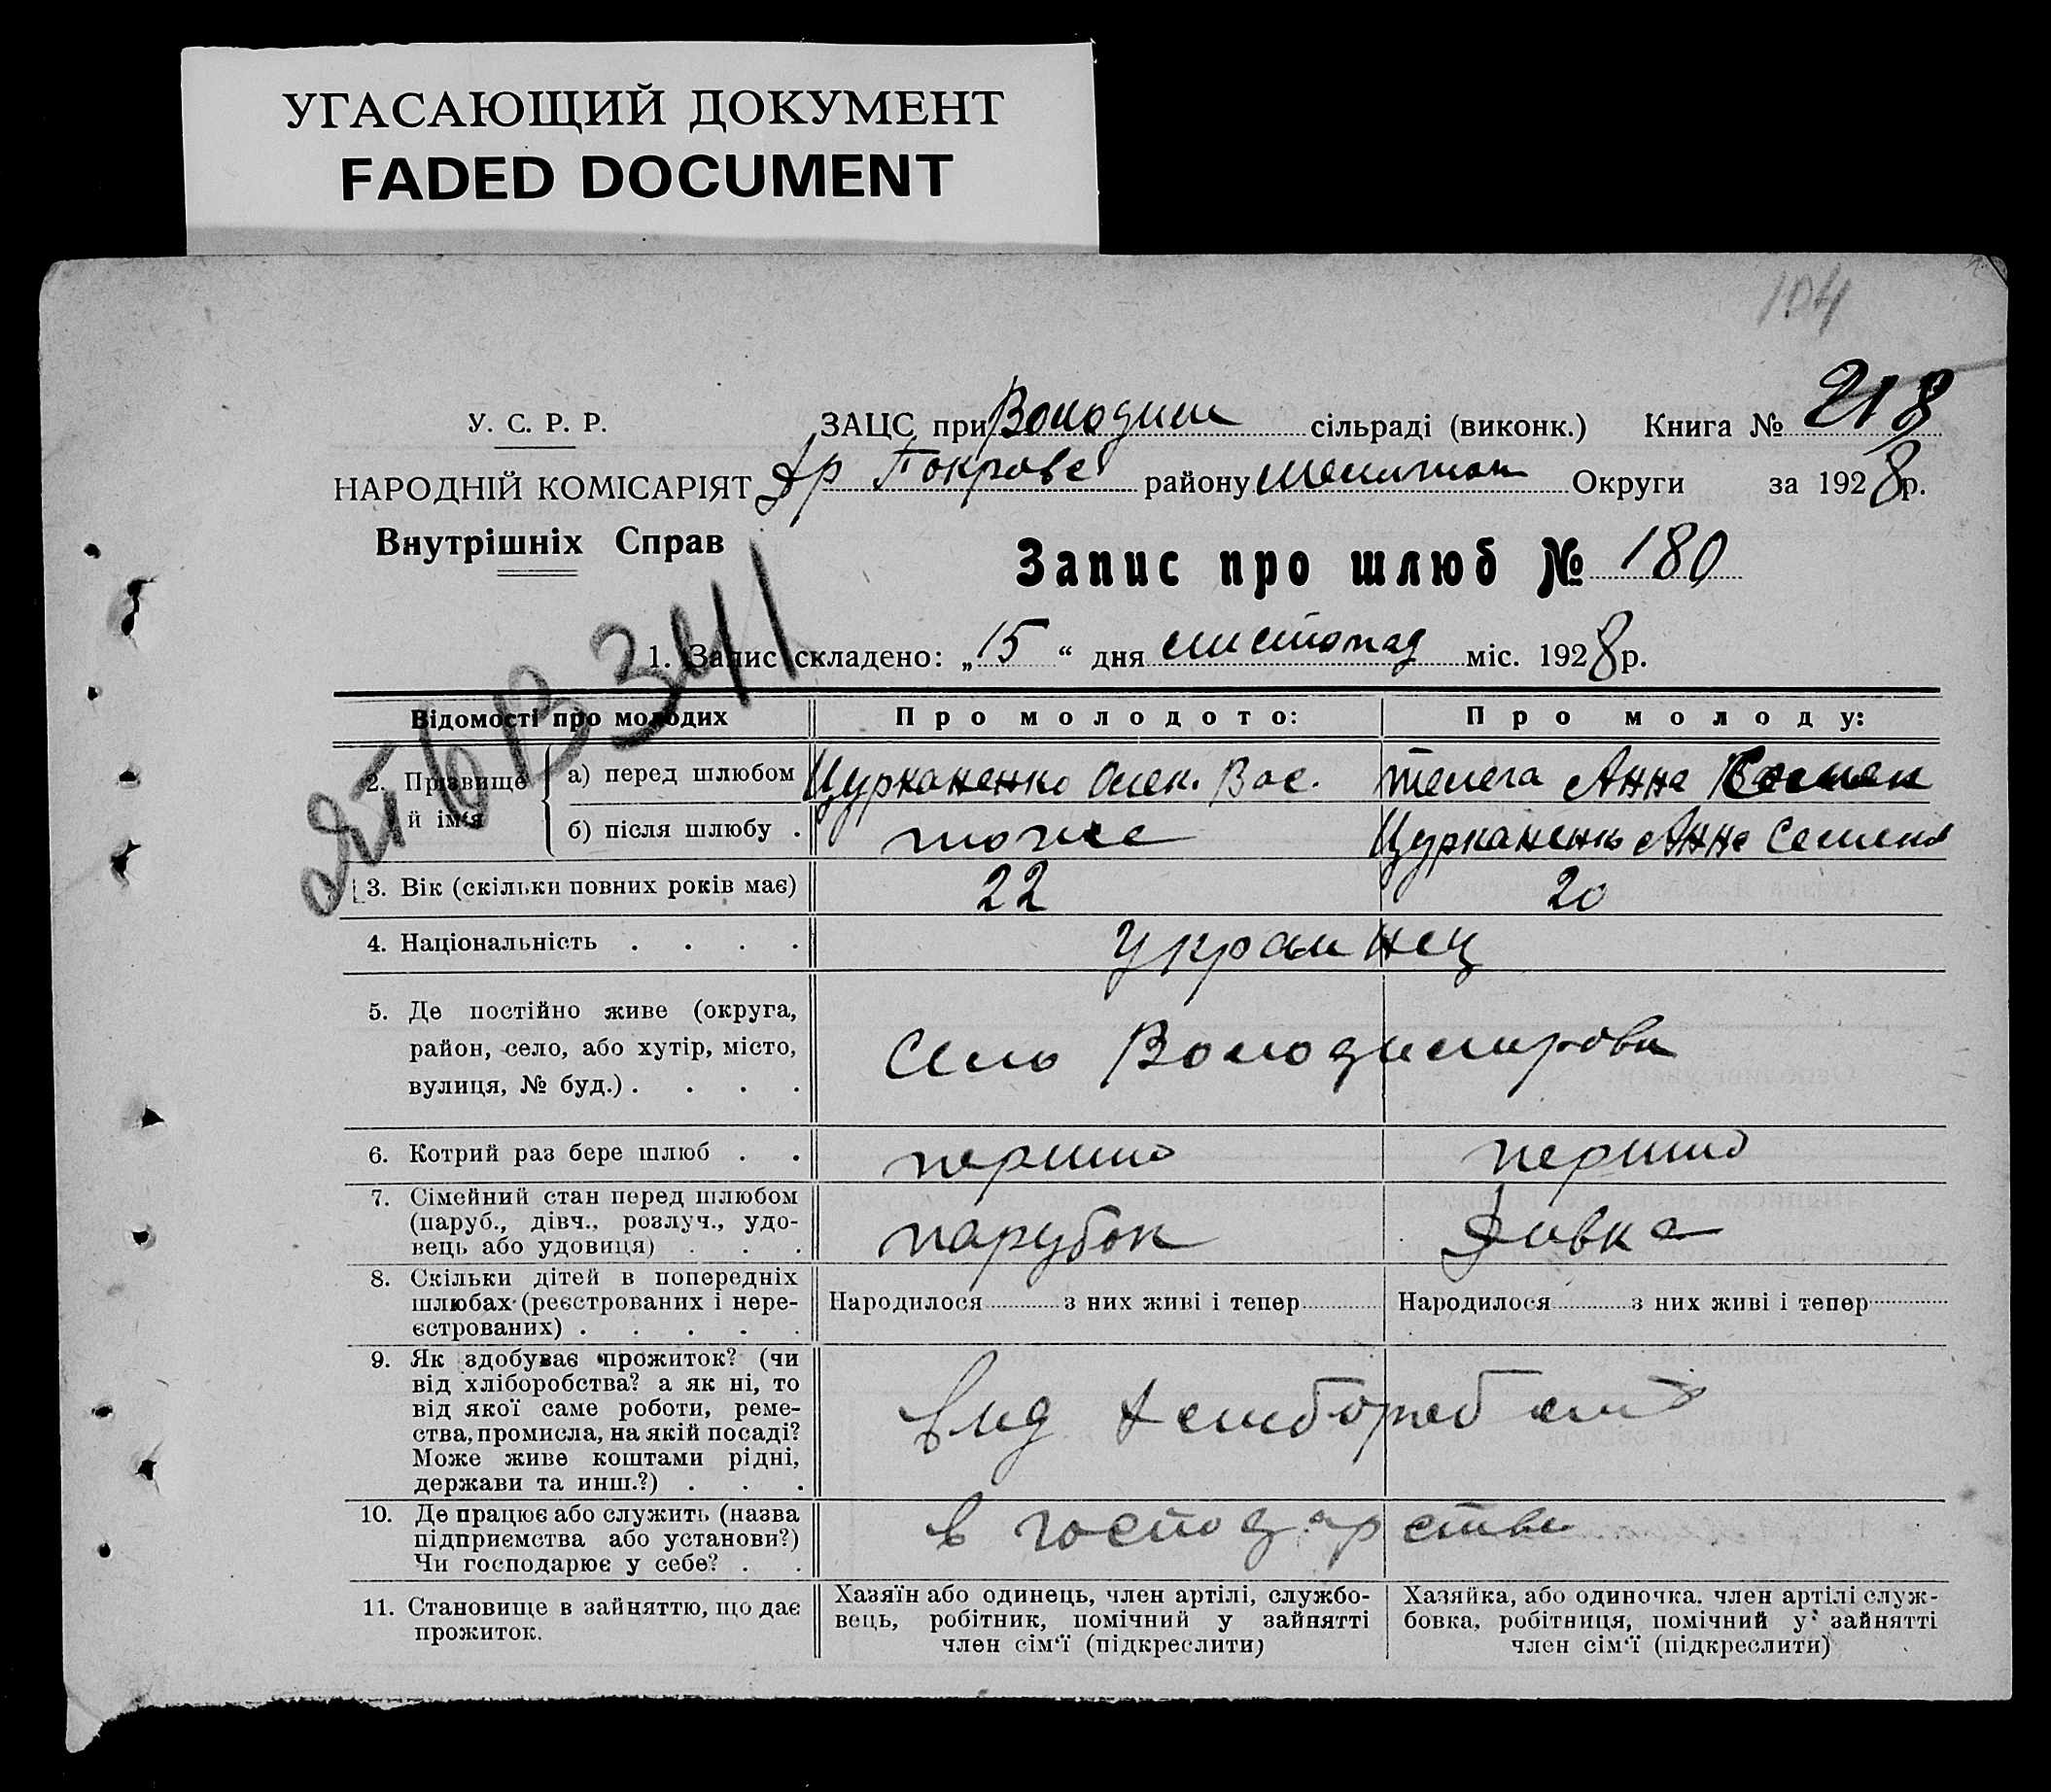 УГАСАЮЩИЙ ДОКУМЕНТ
FADED DOCUMENT
104
У. С. Р. Р.
ЗАЦС при Володим сільраді (виконк.) Книга № 218
НАРОДНІЙ КОМІСАРІЯТ
Др Покровс району Округи за 1928 р.
Внутрішніх Справ
Запис про шлюб № 180
1. Запис складено: „15“ дня листопад міс. 1928 р.
341
Відомості про молодих Про молодого: Про молоду:
2. Прізвище й ім'я
а) перед шлюбом Цурканенко Олек. Вас. Телега Анна
б) після шлюбу . тоже Цурканенко Анна Семенов
3. Вік (скільки повних років має) 22 20
4. Національність . . . . Украинец
5. Де постійно живе (округа,
район, село, або хутір, місто,
вулиця, № буд.) . . . .
Село Володимировка
6. Котрий раз бере шлюб . . перший перший
7. Сімейний стан перед шлюбом
(паруб., дівч., розлуч., удо-
вець або удовиця) . . .
парубок Дивка
8. Скільки дітей в попередніх
шлюбах (реєстрованих і нере-
єстрованих) . . . . .
Народилося з них живі і тепер Народилося з них живі і тепер
9. Як здобуває прожиток? (чи
від хліборобства? а як ні, то
від якої саме роботи, реме-
ства, промисла, на якій посаді?
Може живе коштами рідні,
держави та инш.?) . . .
вид
10. Де працює або служить (назва
підприємства або установи?)
Чи господарює у себе? . .
в господарстви
11. Становище в зайняттю, що дає
прожиток.
Хазяїн або одинець, член артілі, службо-
вець, робітник, помічний у зайнятті
член сім'ї (підкреслити)
Хазяйка, або одиночка, член артілі служ-
бовка, робітниця, помічний у зайнятті
член сім'ї (підкреслити)